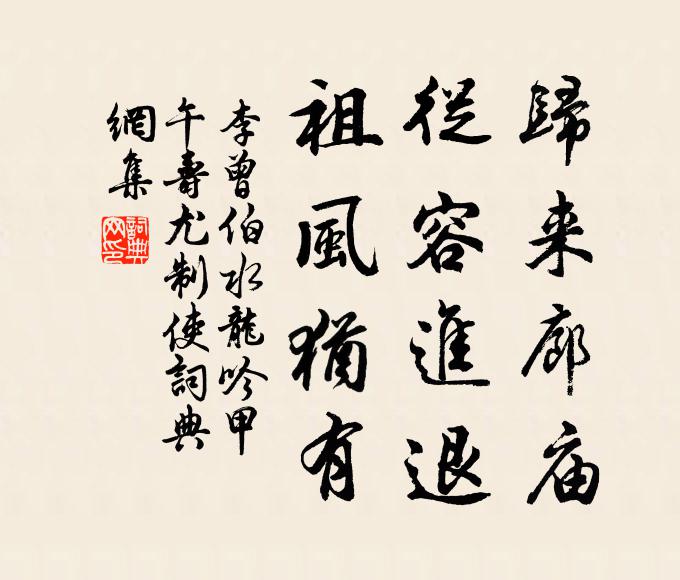 歸来廊庙
從容進退
祖風猶有
李曾伯水龍吟甲
午壽尤制使詞典
網集
詞典網印